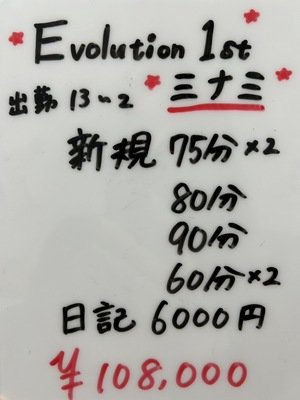 Evolution 1st
ミナミ
出勤 13〜2
新規 75分×2
80分
90分
60分×2
日記 6000円
¥108,000